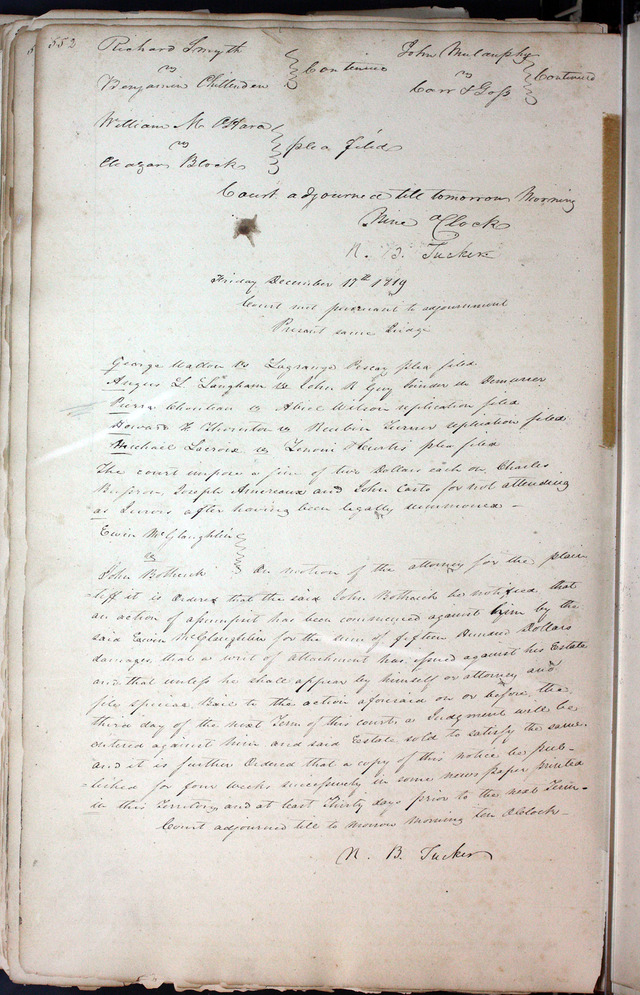 552
Richard Smyth
vs } Continued
Benjamin Chittenden
John Mulanphy
vs } Continued
Carr & Goss
William M. OHara
vs } plea filed
Eleazar Block
Court adjourned till tomorrow Morning
Nine oClock
N. B. Tucker
Friday December 17th 1819
Court met pursuant to adjournment
Present same Judge
George Wallon vs Lagrange plea filed
Angus L. Langham vs John R Guy Joinder in Demurrer
Pierre Chouteau vs Abiel Wilson replication filed
Howard F. Thornton vs Reuben replication filed
Michael Lacroix vs Curtis plea filed
The court impose a fine of two Dollars each on, Charles
Busson, Joseph Amereaux and John Carto for not attending
as Jurors after having been legally summoned -
Ewin McGlaughlin
vs
John Bothrick } On motion of the attorney for the plain
tiff it is Ordered that the said John Bothrick be notified that
an action of assumpsit has been commenced against him by the
said Erwin McGlaughlin for the sum of fifteen Hundred Dollars
damages, that a writ of attachment has issued against his Estate
and that unless he shall appear by himself or attorney and
file special Bail to the action aforesaid on or before, the
third day of the next Term of this court, a Judgment will be
entered against him and said Estate sold to satisfy the same.
and it is further Ordered that a copy of this notice be pub-
-lished for four weeks successively in some news paper printed
in this Territory, and at least Thirty days prior to the next Term -
Court adjourned till to morrow morning ten OClock -
N. B. Tucker